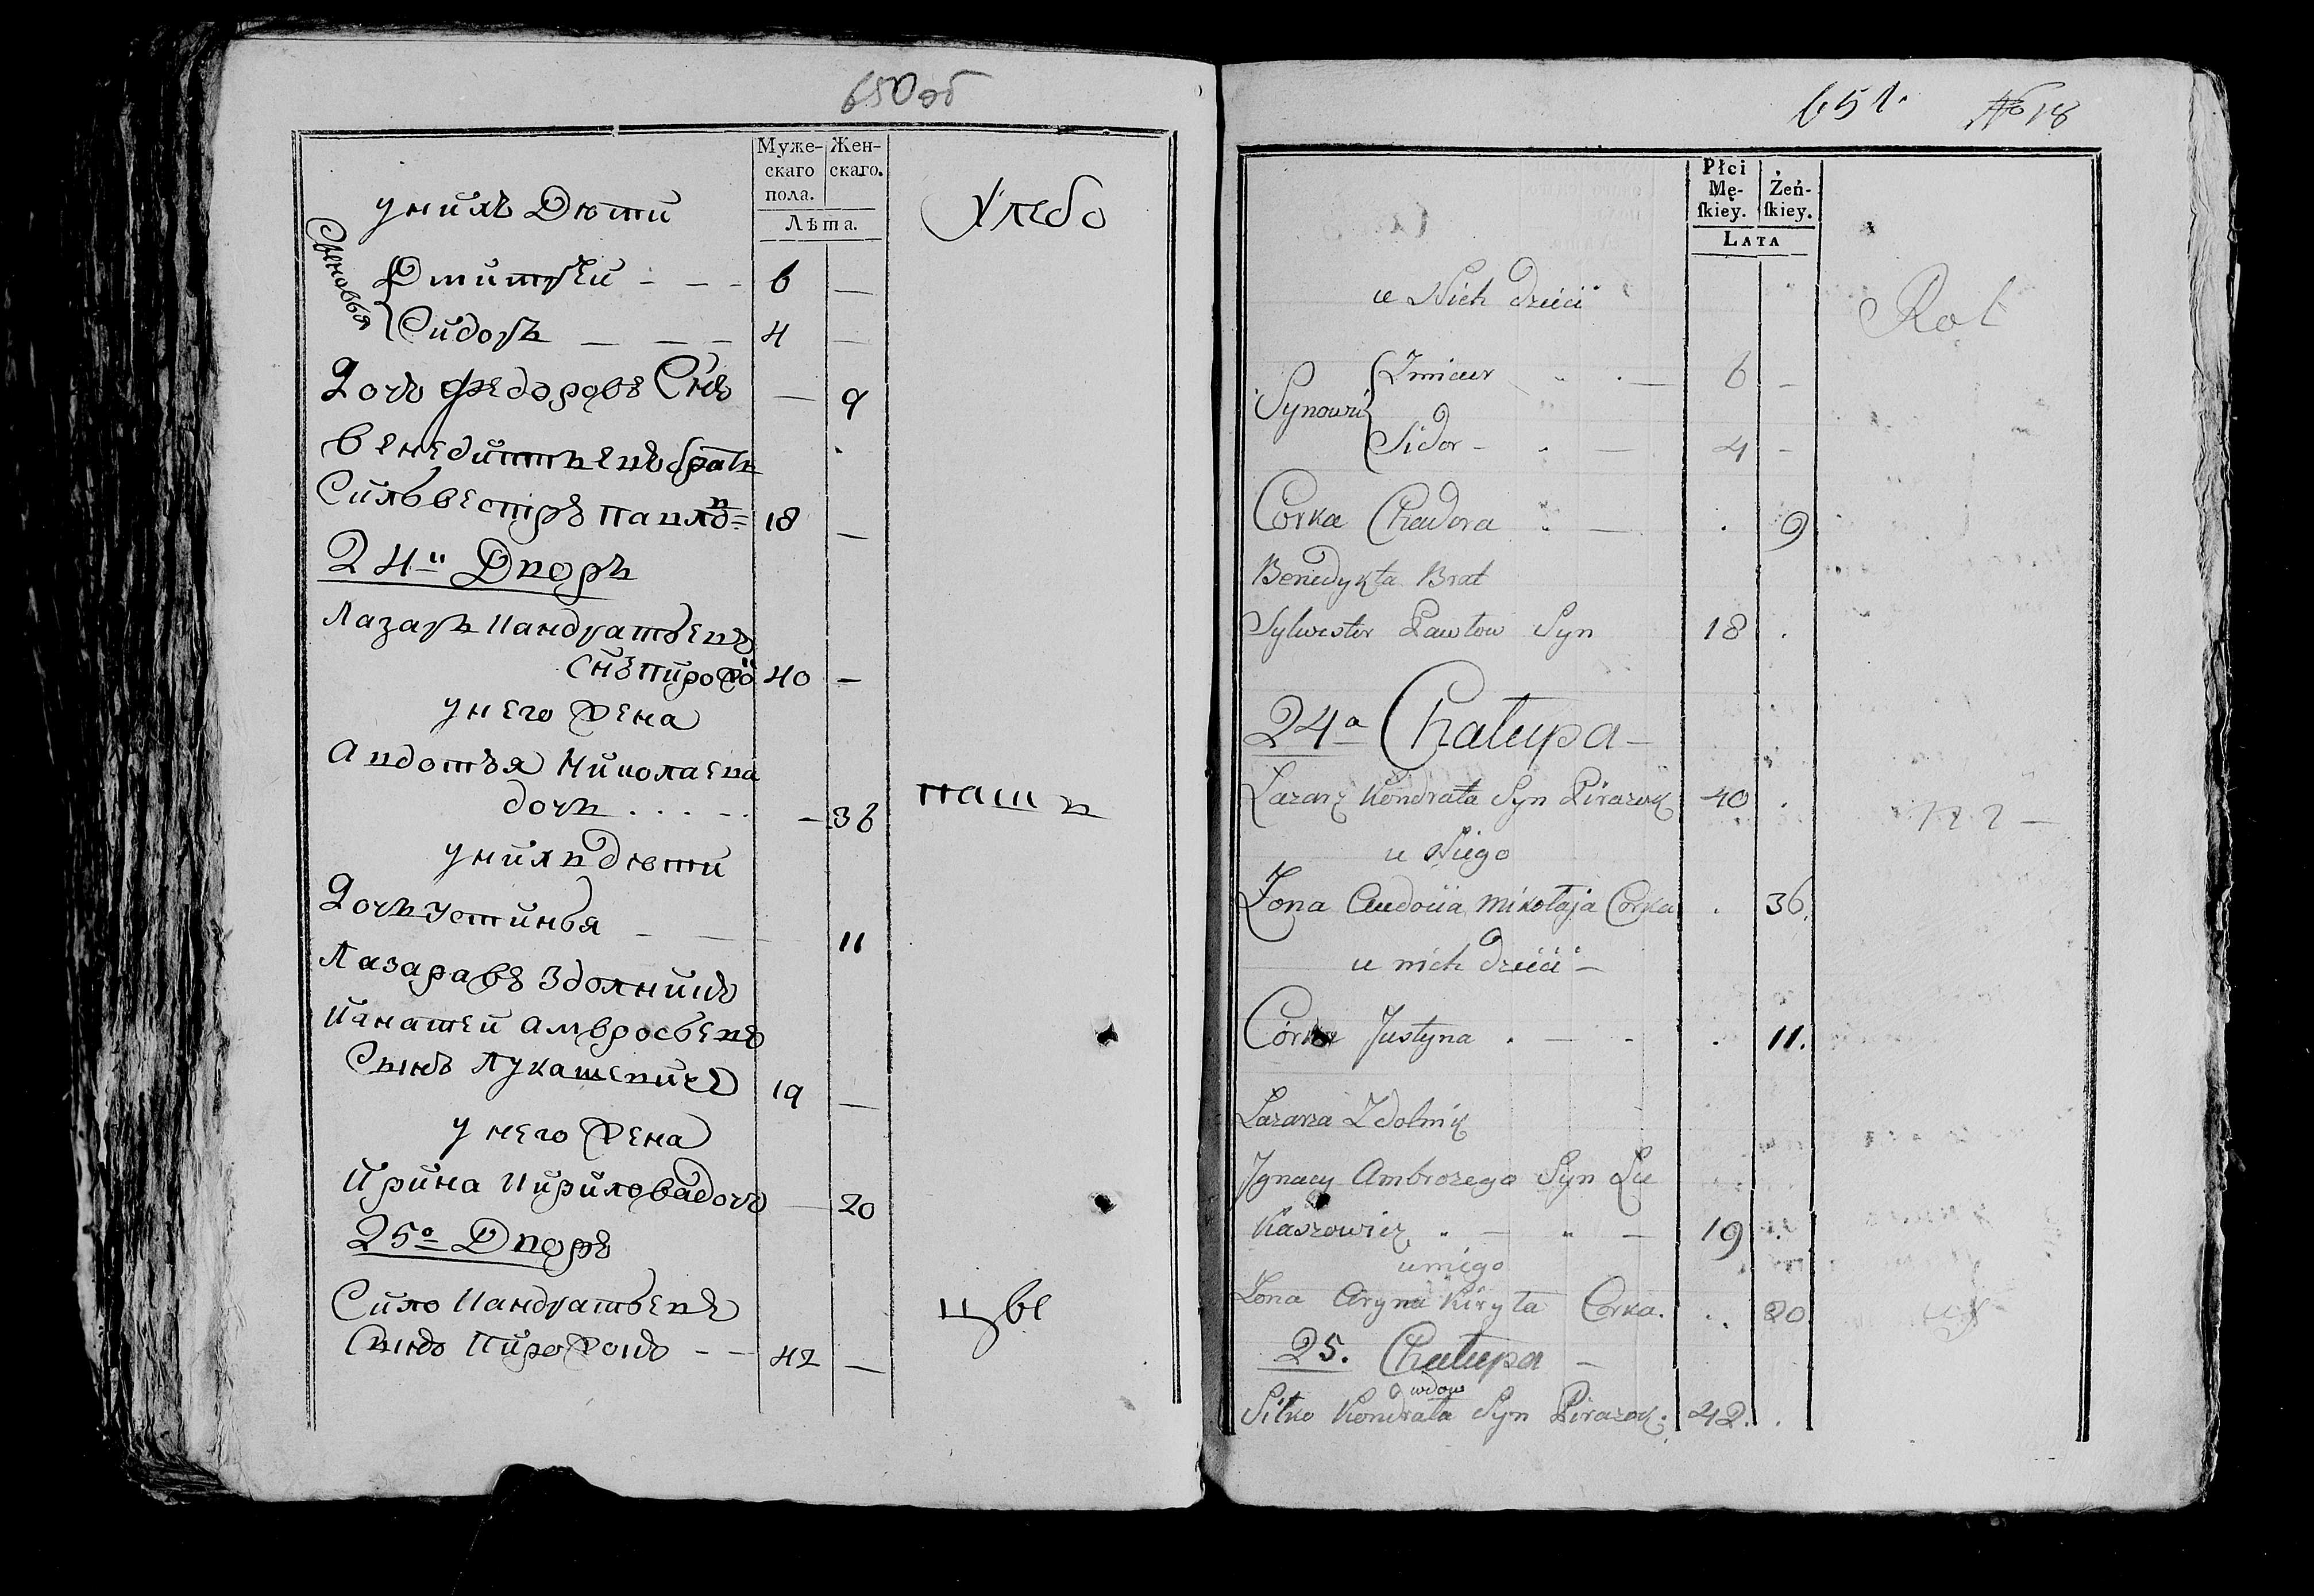 650об
Муже-
скаго
пола.
Жен-
скаго.
Лѣта.
унихъ Дѣти
Хлебо
Сыновья
Дмитрей - - - 6 —
Сидоръ — — — 4 —
Дочь Федоравъ Снъ — 9
Венедиктъевъ братъ
Сильвестръ павлв= 18 —
24й Дворъ
Лазаръ Кандратьевъ
Снъ пирожо 40 —
унего жена
Авдотъя Николаева
дочъ . . . - . — 36
пашъ
унихъ дѣти
Дочъ устинья — — 11
Лазаравъ здолникъ
Игнатей амвросьевъ
Сынъ Лукашевичъ 19 —
унего жена
Ирина Кирилова дочь — 20
25о Дворъ
Сило Кандратьевъ
цве
Сынъ Пирожокъ - — 42 —
651. № 18
Płci
Mę-
ſkiey.
Żeń-
ſkiey.
LATA
u Nich dzieci
Rol
Synowie
Zmicer 6 -
Sidor - . — 4 -
Corka Chadora . — . 9
Benedykta Brat
Sylwester Pawłow Syn 18 .
24a Chałupa —
Łazarz Kondrata Syn Pirazok 40 .
u Niego
Żona Audocia Mikołaja Corka . 36.
u nich dzieci —
Córka Justyna . — - . 11.
Łazarza Zdolnik
Jgnacy Ambrozego Syn Łu
kaszowicz . — . — 19 .
uniego
Żona Aryna Kiryła Corka. . . 20
25. Chałupa —
wdow
Siłko Kondrata Syn Pirazok. 42. .